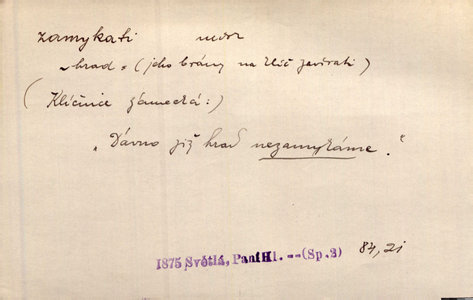 zamykati ndk
„hrad“ (jeho brány na klíč zavírati)
(Klíčnice zámecká:)
„Dávno již hrad nezamykáme.“
1875 Světlá, Paní Hl. -- (Sp. 2) 84, 21